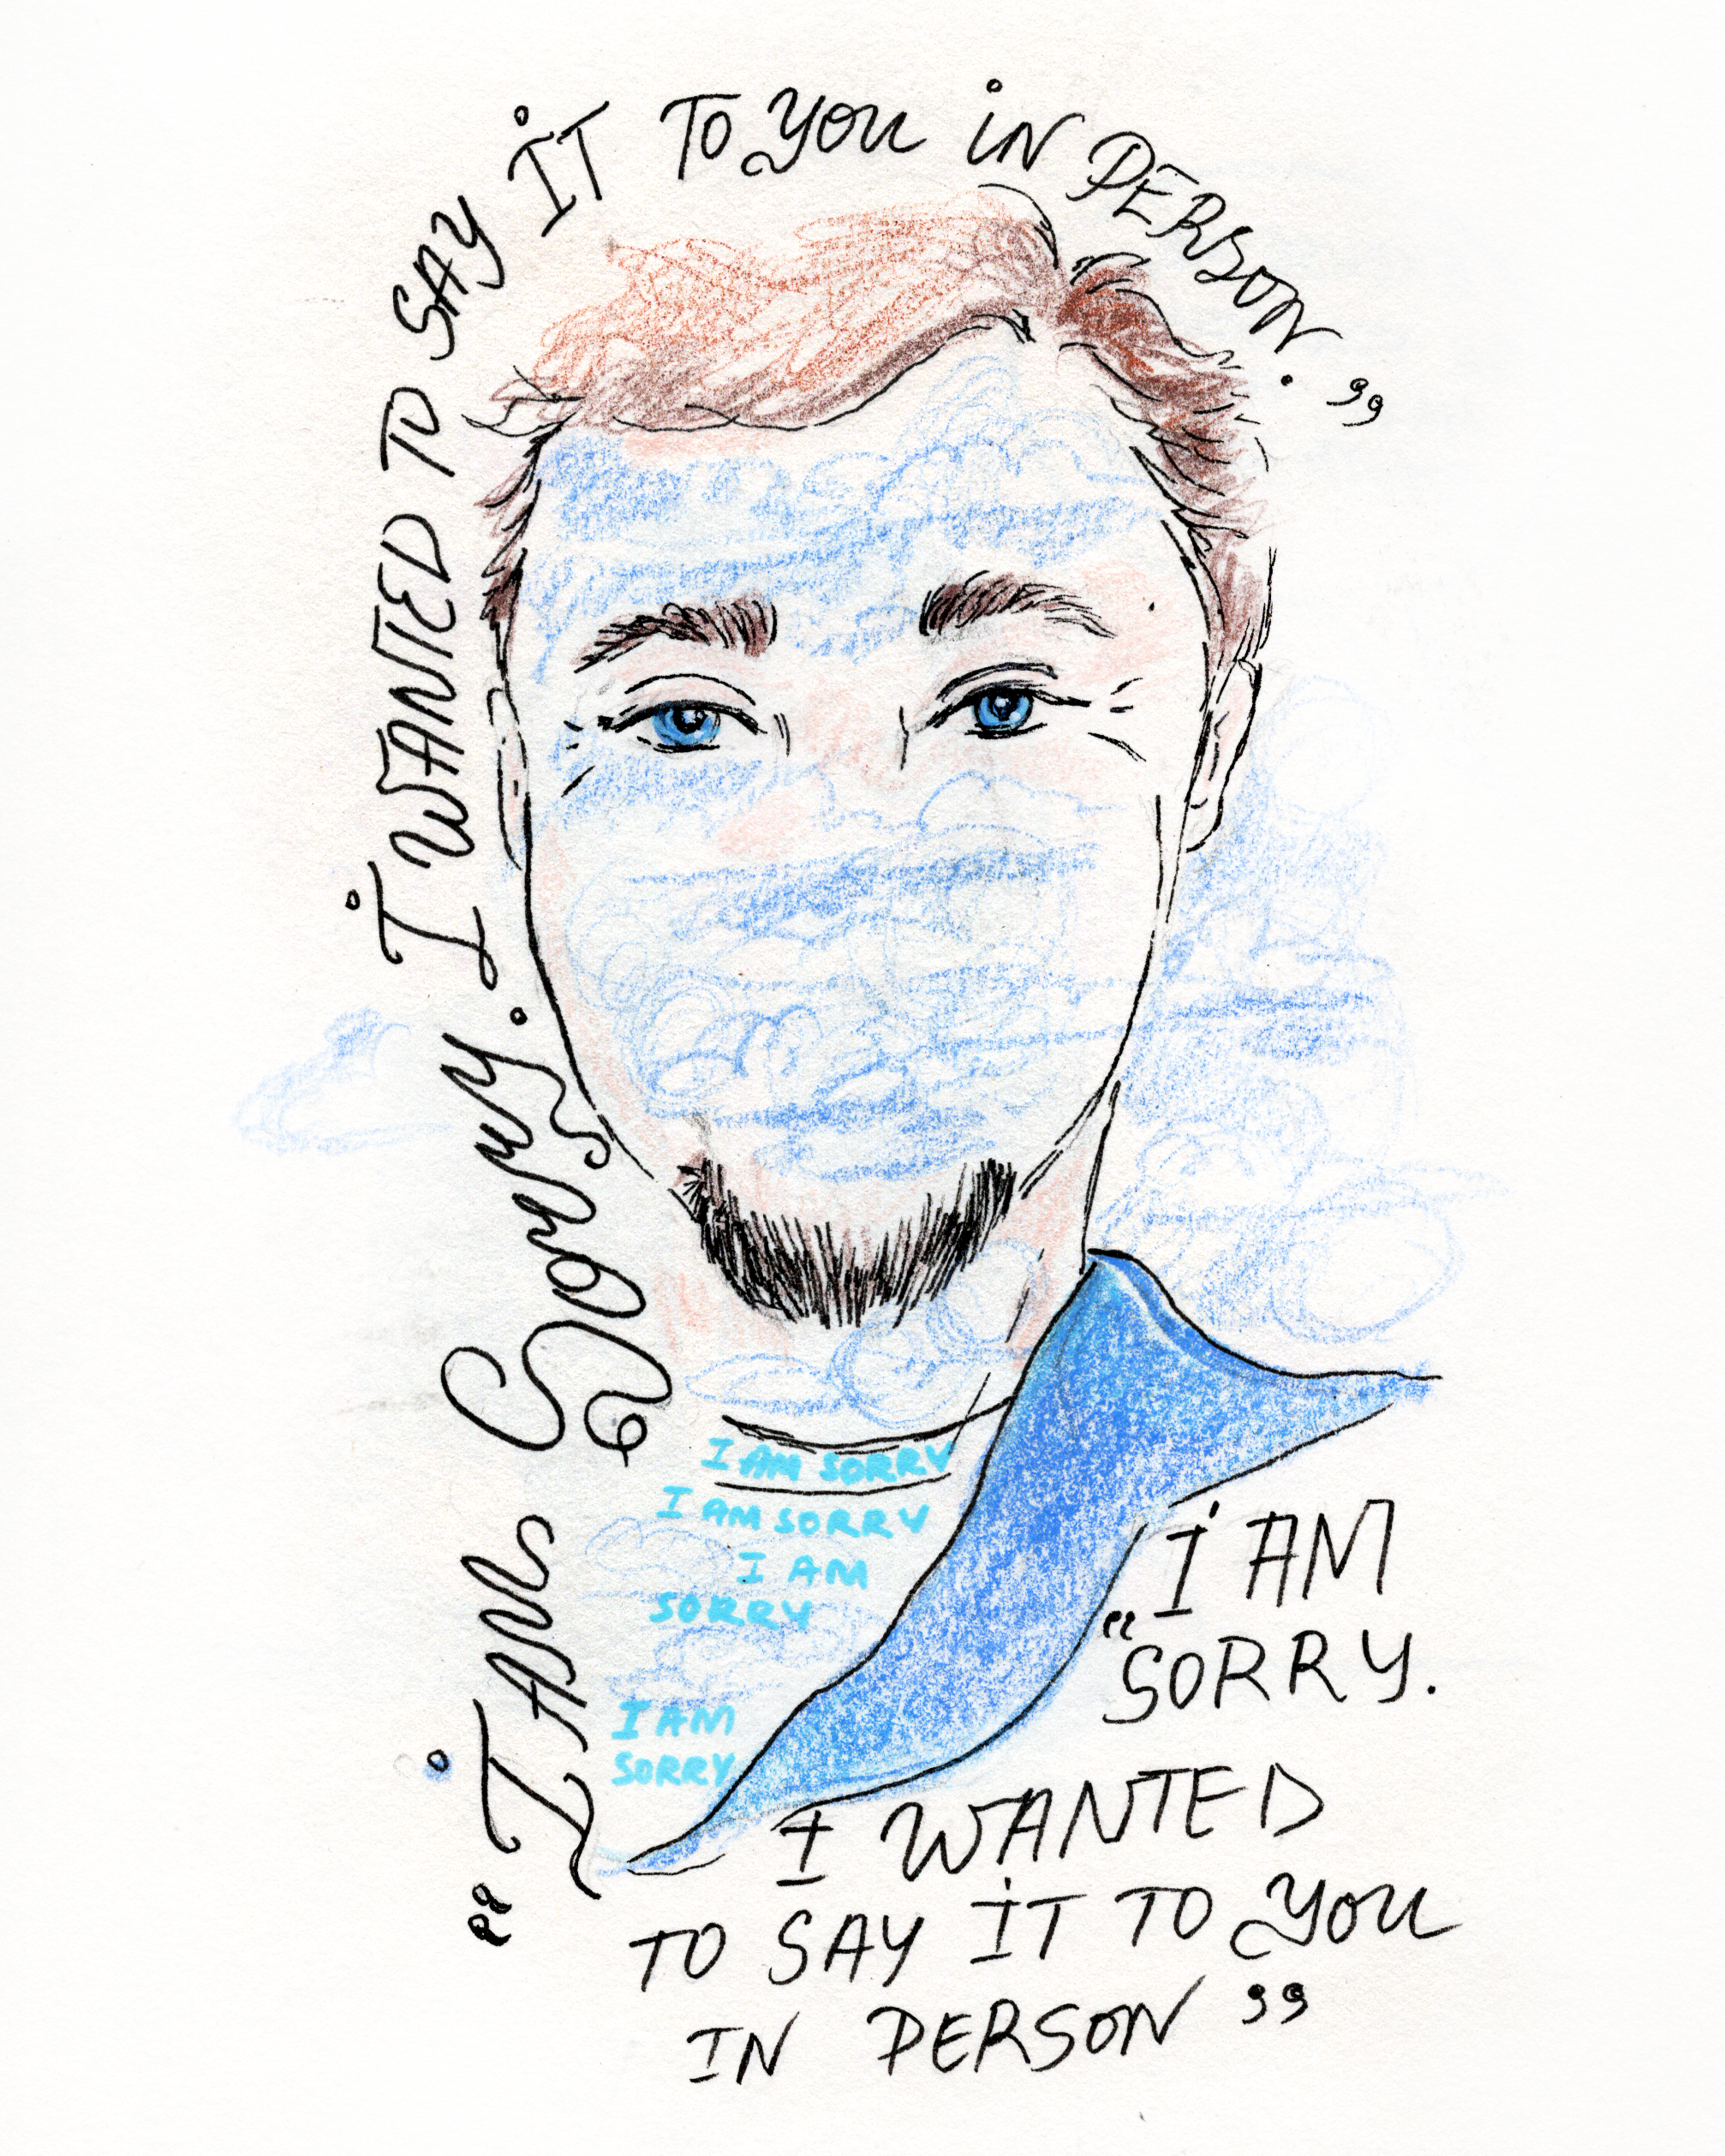 "I AM SORRY. I WANTED TO SAY IT TO YOU IN PERSON."
I AM SORRY
I AM SORRY
I AM
SORRY
I AM
SORRY
"I AM
SORRY.
I WANTED
TO SAY IT TO YOU
IN PERSON"